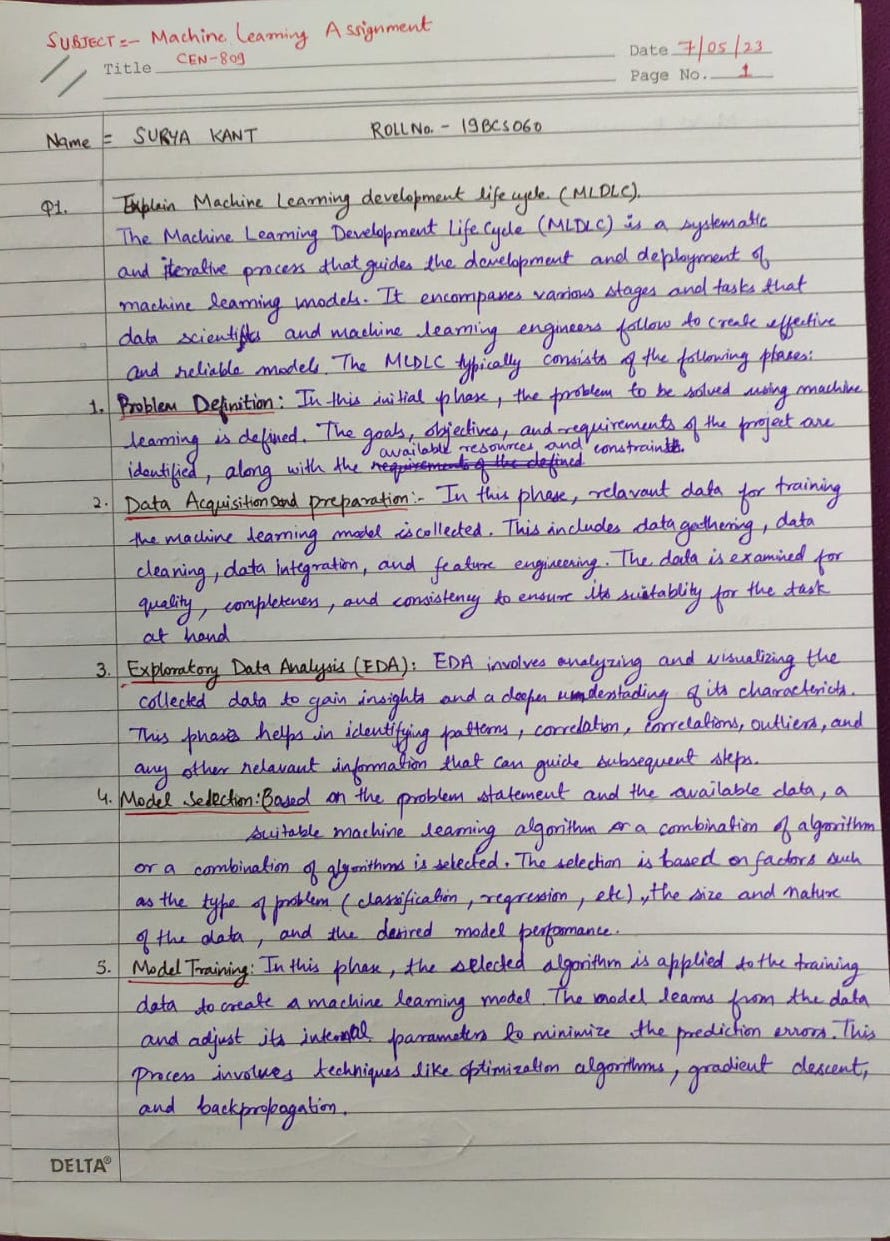 SUBJECT :- Machine Learning Assignment
Title CEN-809
Date 7/05/23
Page No. 1
Name = SURYA KANT ROLL No. - 19BCS060
Q1. Explain Machine Learning development life cycle. (MLDLC).
The Machine Learning Development Life Cycle (MLDLC) is a systematic
and iterative process that guides the development and deployment of
machine learning models. It encompasses various stages and tasks that
data scientists and machine learning engineers follow to create effective
and reliable models. The MLDLC typically consists of the following phases:
1. Problem Definition: In this initial phase, the problem to be solved using machine
learning is defined. The goals, objectives, and requirements of the project are
identified, along with the available resources and constraints.
2. Data Acquisition and preparation:- In this phase, relavant data for training
the machine learning model is collected. This includes data gathering, data
cleaning, data integration, and feature engineering. The data is examined for
quality, completeness, and consistency to ensure its suistablity for the task
at hand
3. Exploratory Data Analysis (EDA): EDA involves analyzing and visualizing the
collected data to gain insights and a deeper understading of its charactericts.
This phase helps in identifying patterns, correlation, correlations, outliers, and
any other relavant information that can guide subsequent steps.
4. Model Selection: Based on the problem statement and the available data, a
suitable machine learning algorithm or a combination of algorithm
or a combination of algorithms is selected. The selection is based on factors such
as the type of problem (classification, regression, etc), the size and nature
of the data, and the desired model performance.
5. Model Training: In this phase, the selected algorithm is applied to the training
data to create a machine learning model. The model learns from the data
and adjust its internal parameters to minimize the prediction errors. This
process involves techniques like optimization algorithms, gradient descent,
and backpropagation.
DELTA®